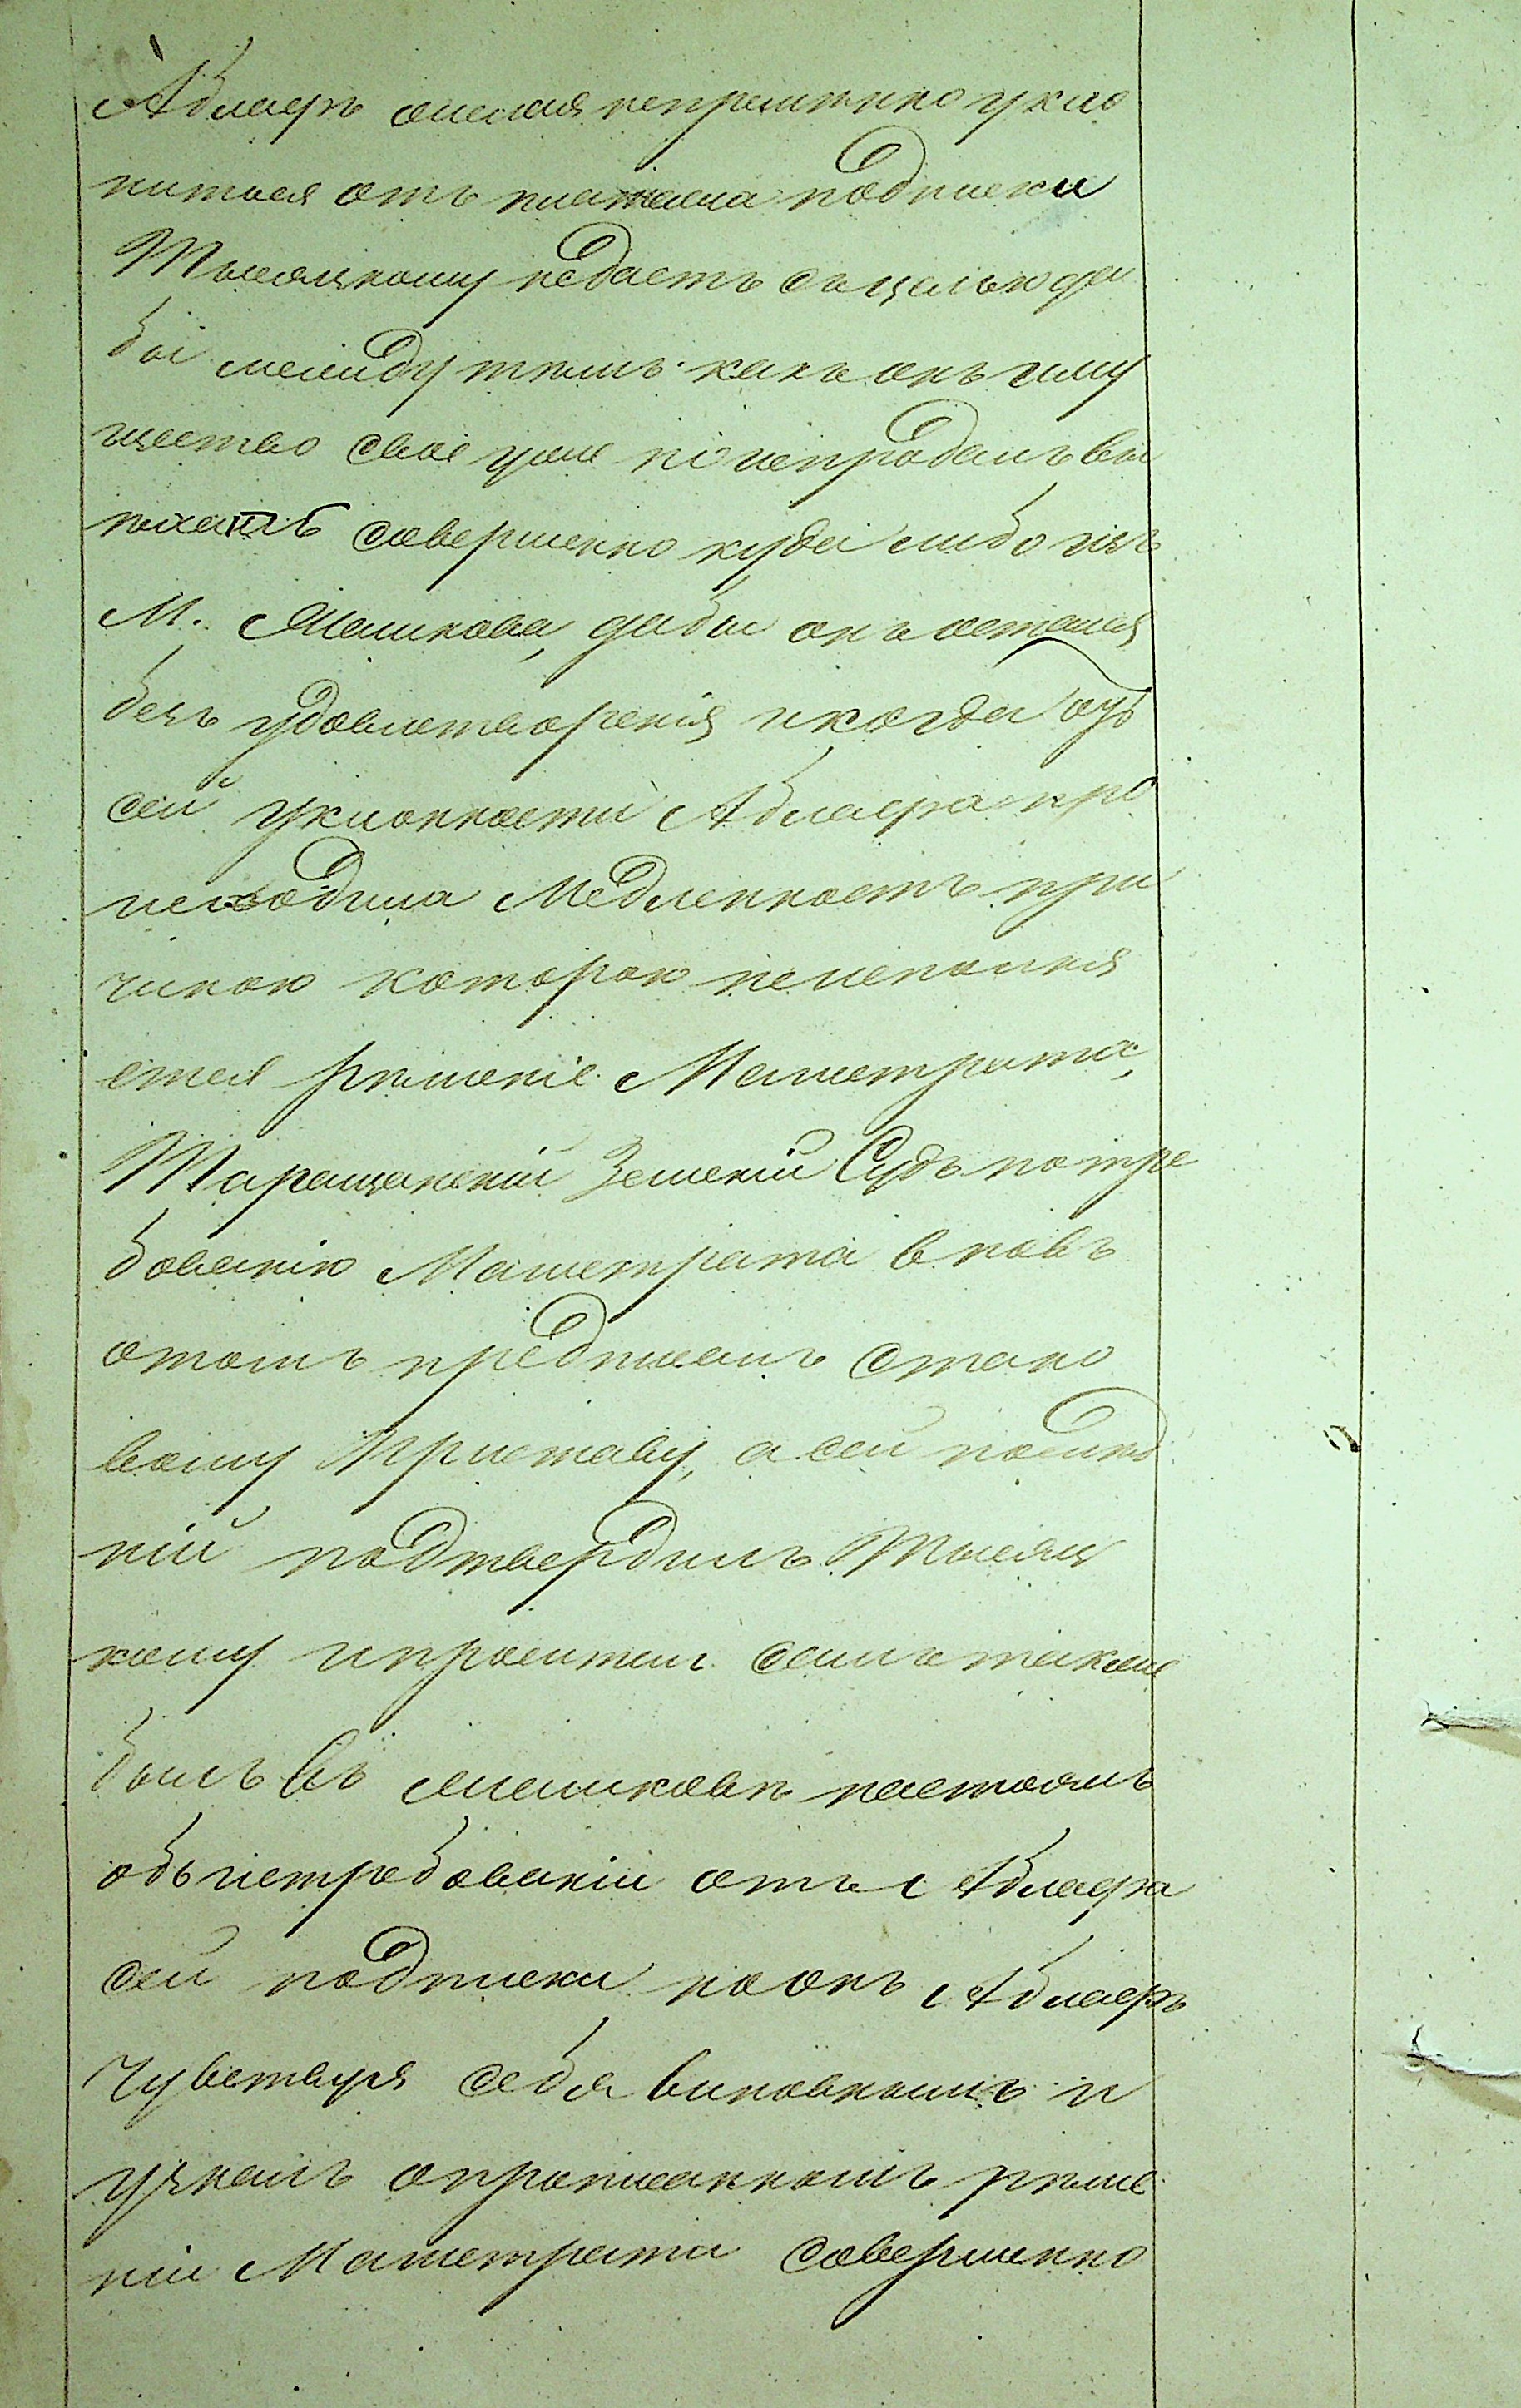 Аблаеръ желая непремѣнно укло
нится отъ платежа подписки
Тысяцкому недаетъ съ целью да
бы между тѣмъ какъ онъ иму
щество свое уже поиспродалъ вы
ѣхать совершенно куда либо изъ
М. Машкова, дабы онъ остался
безъ удовлетворенія и когда отъ
сей уклонности Аблаера про
исходила Медленность при
чиною которою неисполня
ется рѣшеніе Магистрата,
Таращанскій Земскій Судъ по тре
бованію Магистрата вновь
отомъ предписалъ Стано
вому Приставу, а сей послѣд
ній подтвердилъ Тысяц
кому и проситель самъ также
былъ въ Машковѣ настоялъ
объ истребованіи отъ Аблаера
сей подписки но онъ Аблаеръ
Чувствуя себя виновнымъ и
узналъ опрописанномъ рѣше
ніи Магистрата совершенно